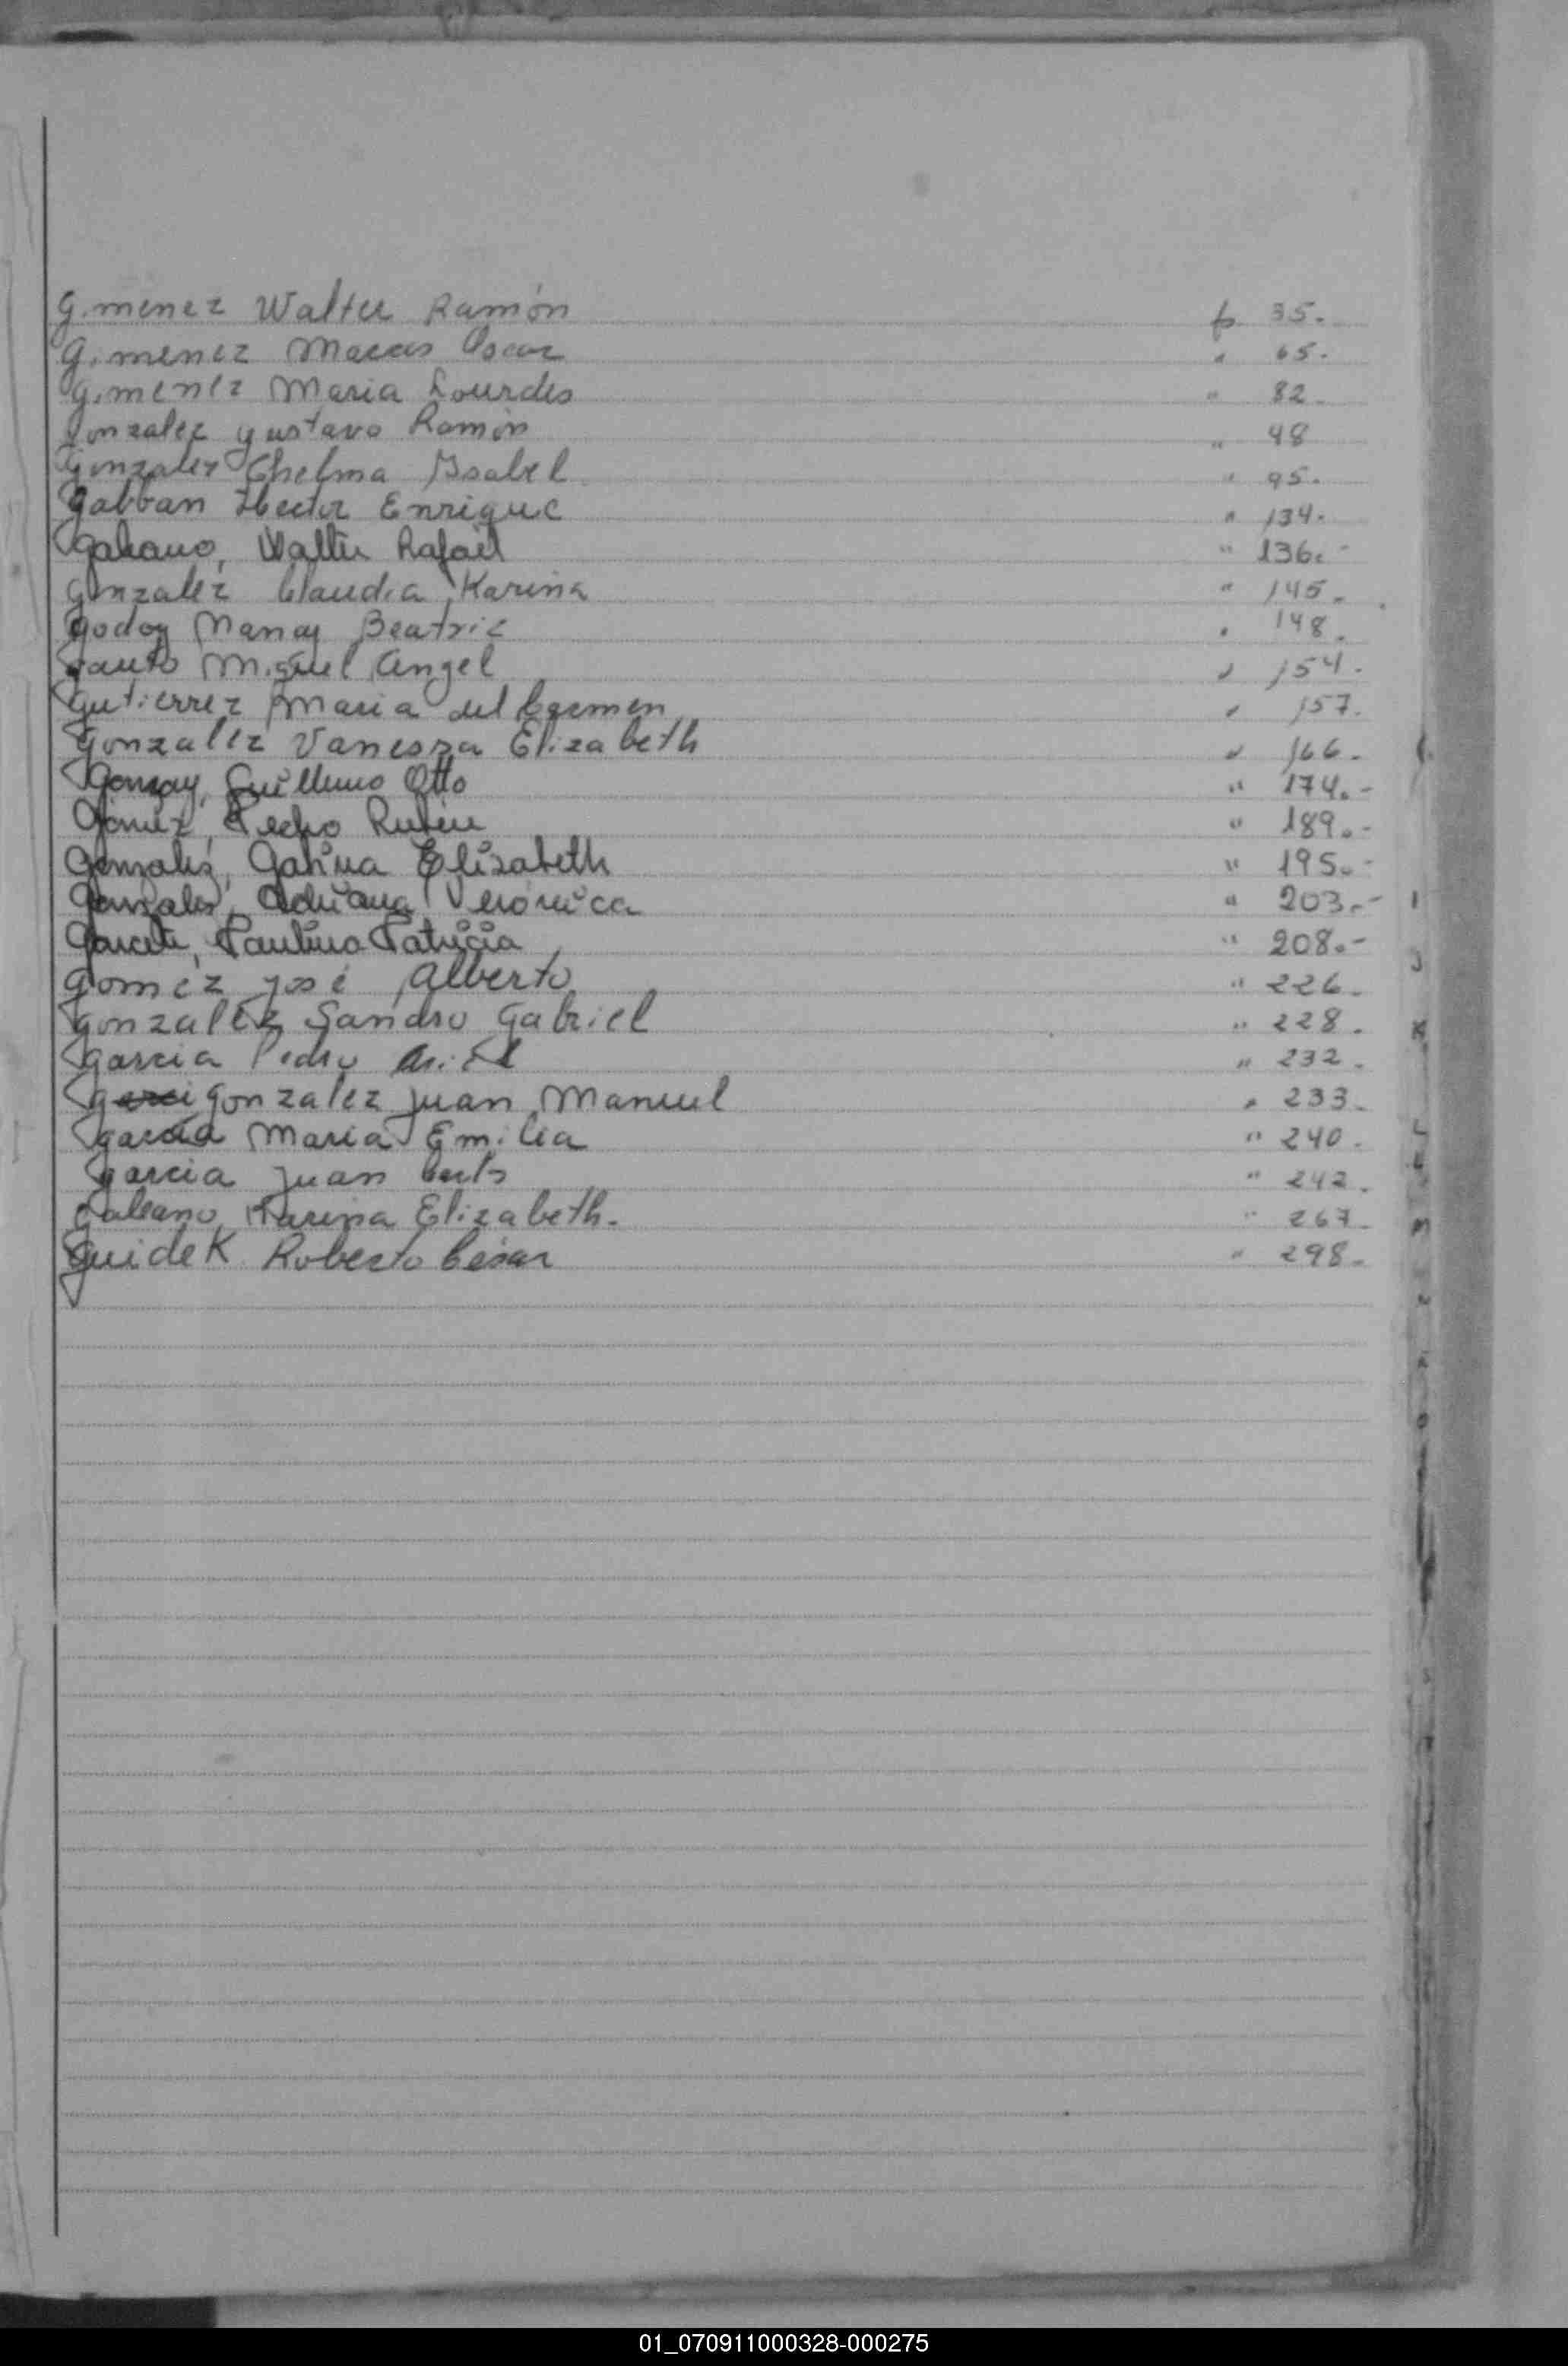 Gimenez Walter Ramón f 35.
Gimenez Marcos Oscar " 65.
Gimenez Maria Lourdes " 82.
Gonzalez Gustavo Ramón " 48
Gonzalez Thelma Isabel " 95.
Gabban Hector Enrique " 134.
Galeano, Walter Rafael " 136.-
Gonzalez Claudia Karina " 145.
Godoy Nancy Beatriz " 148.
Gauto Miguel Angel " 154.
Gutierrez Maria del Carmen " 157.
Gonzalez Vanessa Elizabeth " 166.
Guillermo Otto " 174.-
Gomez, Pedro Ruben " 189.-
Gonzalez, Elizabeth " 195.-
Gonzalez, Adriana Verónica " 203.-
Garcete, Paulina Patricia " 208.-
Gomez José Alberto " 226.
Gonzalez Sandro Gabriel " 228.
Garcia Pedro Ariel " 232.
Gonzalez Juan Manuel " 233.
Garcia Maria Emilia " 240.
Garcia Juan " 242.
Galeano, Karina Elizabeth. " 267.
Guidek Roberto César " 298.
01_070911000328-000275